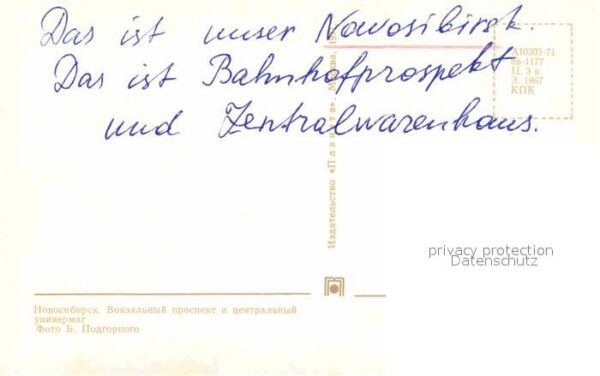 Das ist unser Nowosibirsk.
Das ist Bahnhofprospekt
und Zentralwarenhaus.
А10303-71
Ц. 3 к.
З. 1967
КПК
Издательство «Планета». Москва, 197
privacy protection
Datenschutz
Новосибирск. Вокзальный проспект и центральный
универмаг
Фото Б. Подгорного